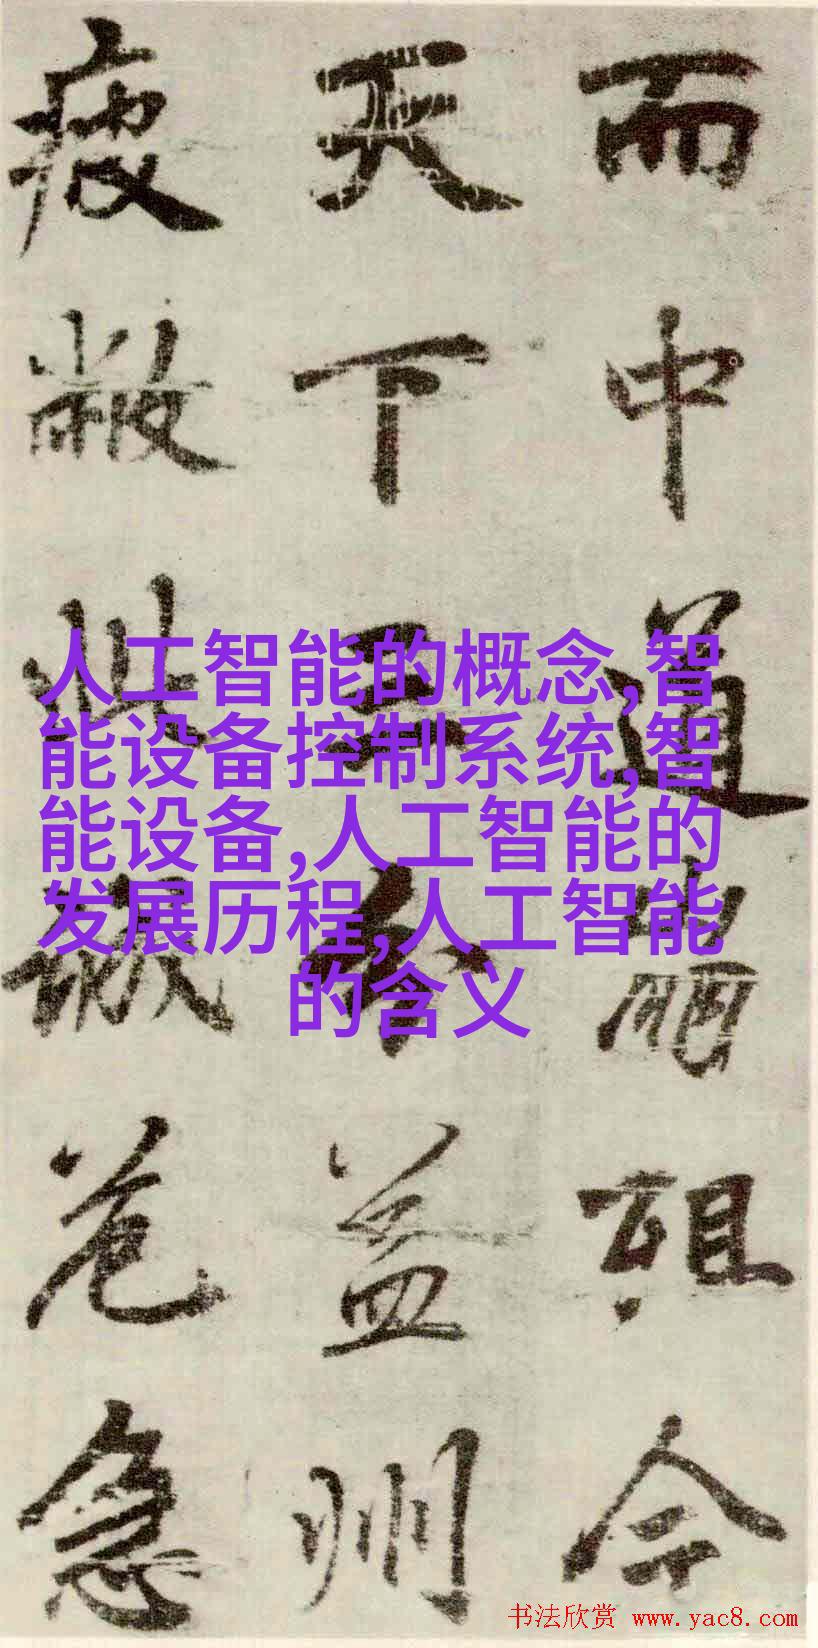 而中道崩殂今
天下三分益州
疲敝此誠危急
人工智能的概念,智
能设备控制系统,智
能设备,人工智能的
发展历程,人工智能
的含义
书法欣赏 www.yac8.com